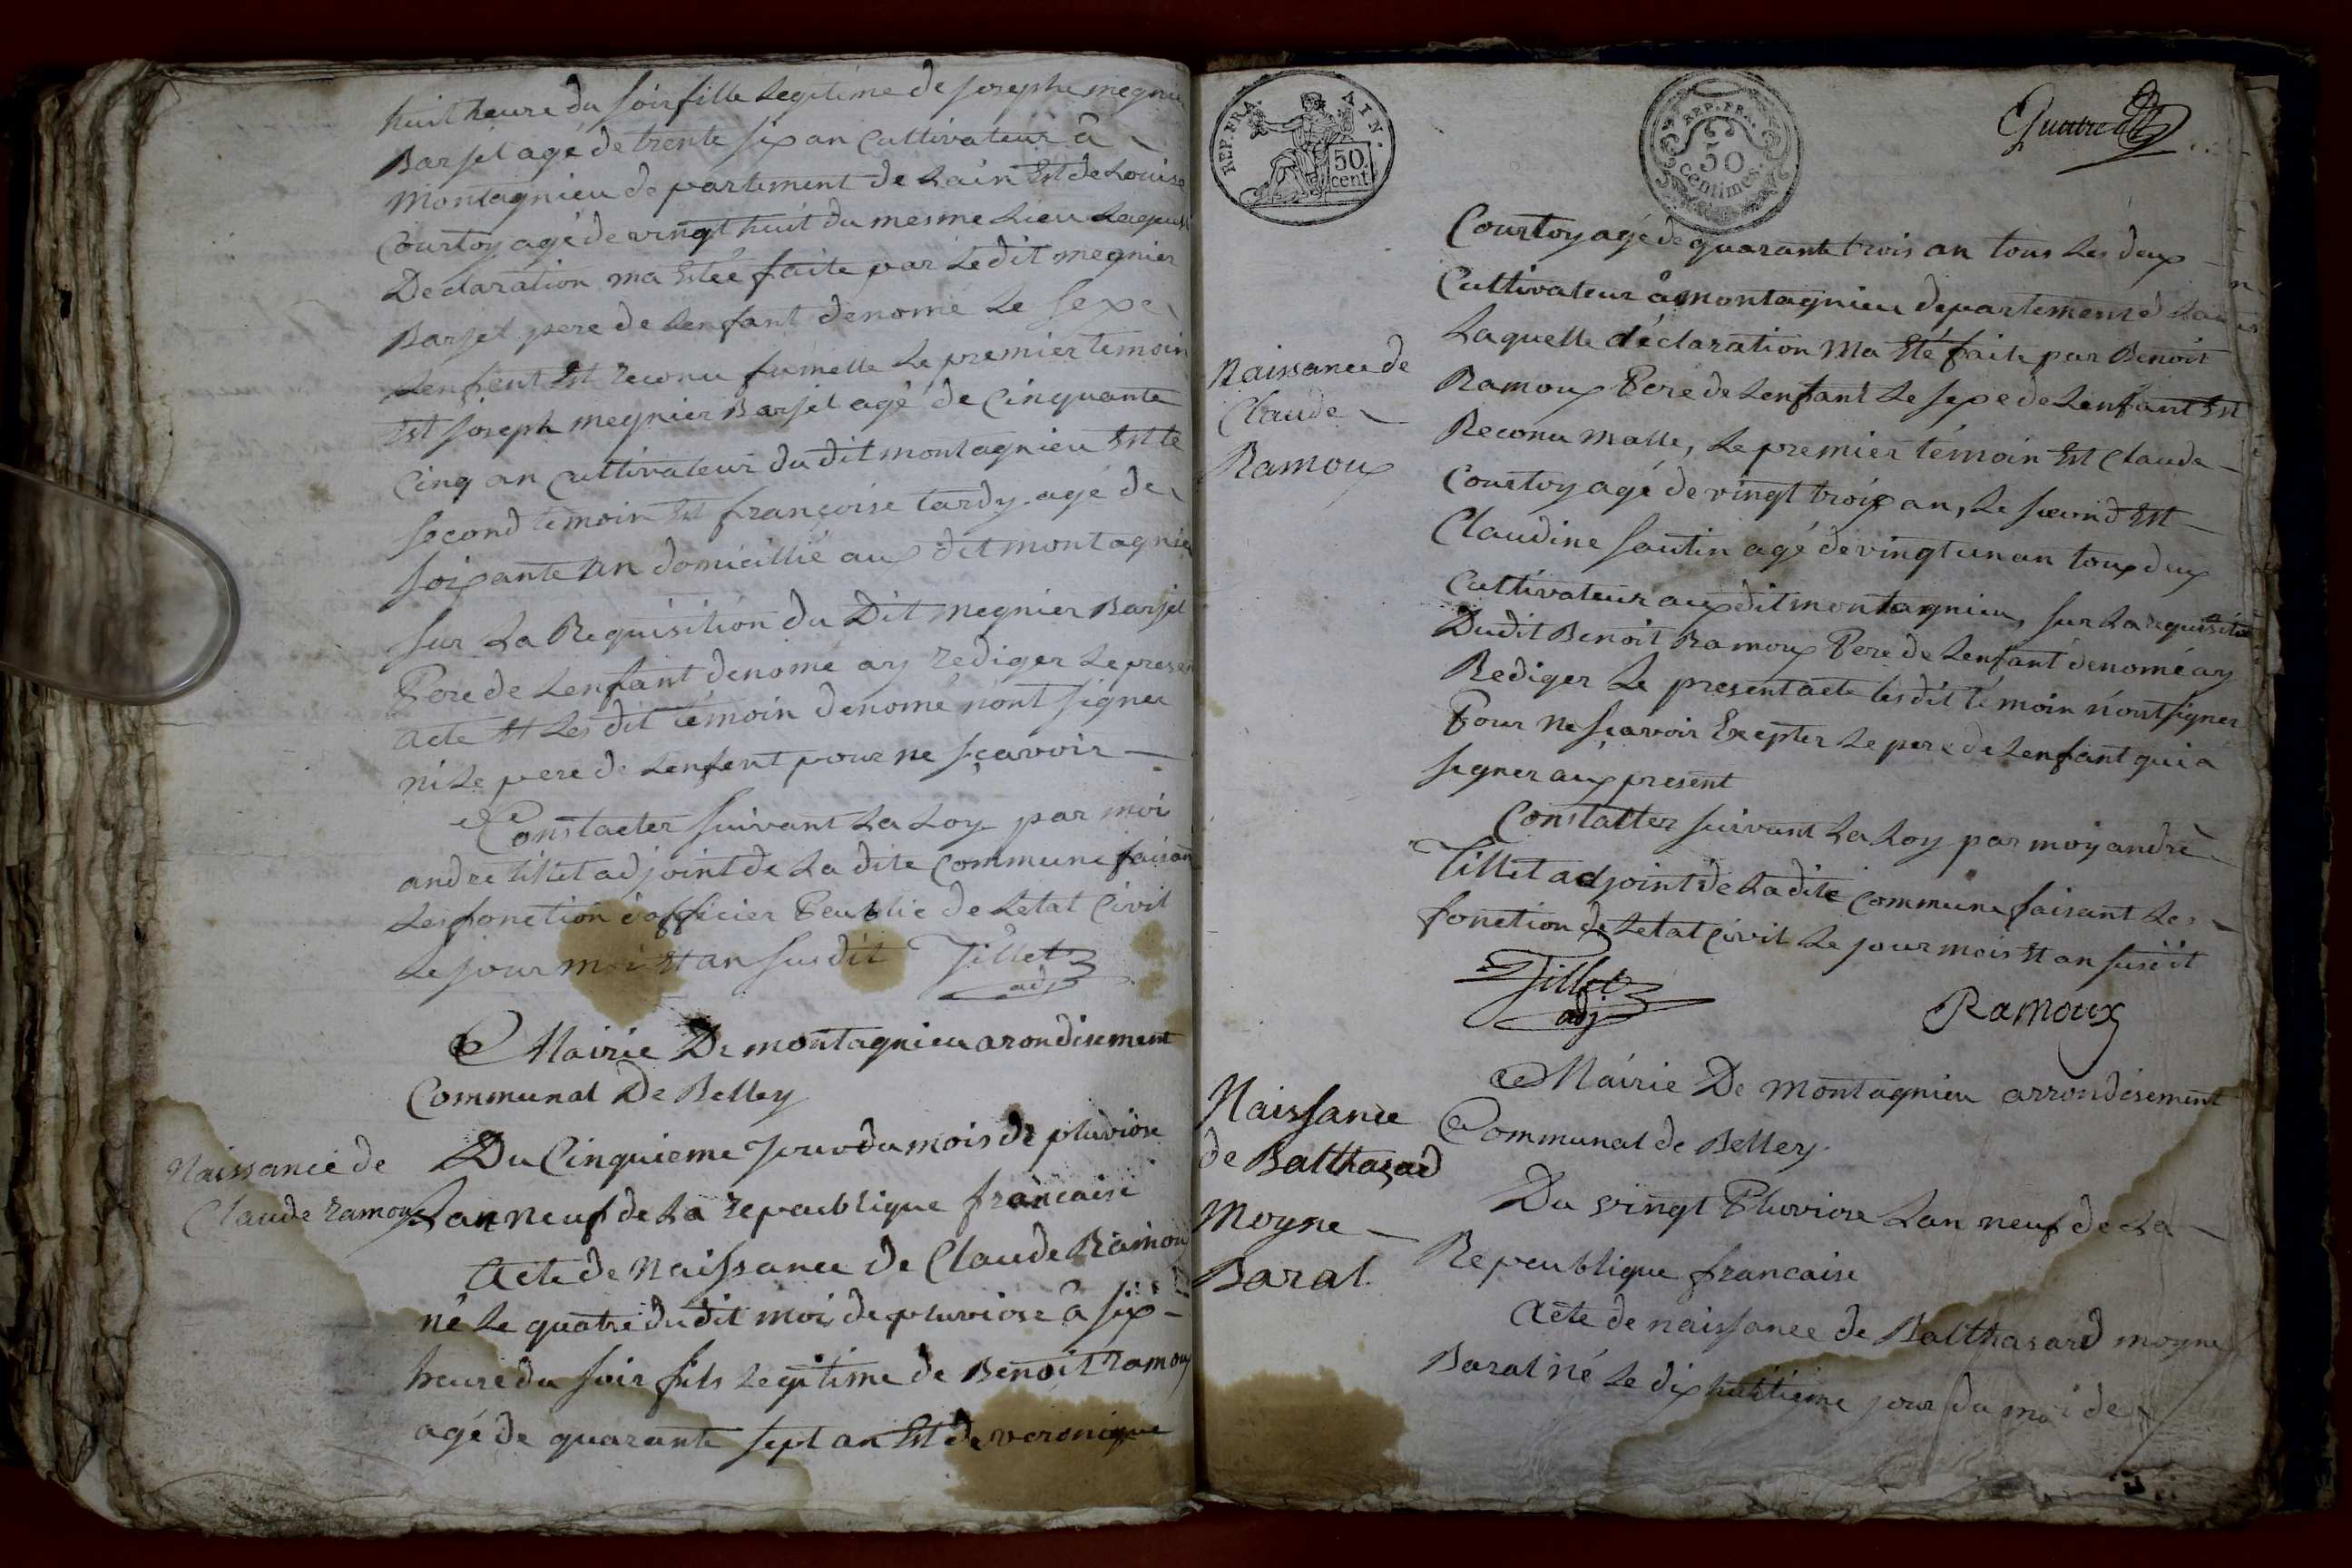 huit heure du soir fille Legitime de josephe megnie
Barjet agé de trente six an Cultivateur à
Montagnieu de partement de Lain Est de Louise
Courtoy agé de vingt huit du mesme Lieu Laquelle
Declaration ma Estée faite par Ledit megnier
Barjet pere de Lenfant denomé Le sexe
Lenfent Est reconu fumelle Le premier temoin
Est joseph megnier Barjet agé de Cinquante
Cinq an Cultivateur du dit montagnieu Est le
second temoin Est françoise tardy agé de
soixante un domicillié aux dit montagnieu
sur La Requisition du Dit megnier Barjet
Pere de Lenfant denomé ay rediger Le present
acte Et Les dit témoin denomé nont signer
ni Le pere de Lenfent pour ne sçavoir
Constater suivant La Loy par moi
andre tillet adjoint de La dite Commune faisant
Les fonction d'officier Peublic de Letat Civil
Le jour moi Et an susdit Tillet
adj
Mairie De montagnieu arondisement
Communal De Belley
Naissance de
Claude ramoux
Du Cinquieme jour du mois de pluviose
Lan neuf de La republique francaise
Acte de Naissance de Claude Ramoux
né Le quatre du dit moi de pluviose à six
heure du soir fils Legitime de Benoit ramoux
agé de quarante sept an Est de veronique
REP. FRA.
50
cent
REP. FR.
50
centimes
Quatre
Naissance de
Claude
Ramoux
Courtoy agé de quarante trois an tous Les deux
Cultivateur à montagnieu departement d Lain
Laquelle déclaration Ma Eté faite par Benoit
Ramoux Pere de Lenfant Le sexe de Lenfant Est
Reconu malle, Le premier témoin Est Claude
Courtoy agé de vingt troix an, Le second Est
Claudine sautin agé de vingt un an toux deux
Cultivateur aux dit montagnieu, sur La requisition
Dudit Benoit Ramoux Pere de Lenfant denomé ay
Rediger Le present acte les dit témoin n'ont signer
Pour ne sçavoir Excepter Le pere de Lenfant qui a
signer aux present
Constatter suivant La Loy par moy andrè
Tillet adjoint de La dite Commune faisant Les
fonction de Letat Civil Le jour mois Et an susdit
Tillet
adj
Ramoux
Naissance
de Balthazad
Moyne
Barat
Mairie De Montagnieu arrondisement
Communal de Belley
Du vingt Pluviose Lan neuf de La
Republique francaise
Acte de naissance de Balthasard moyne
Barat né Le dix huitieme jour du moi de